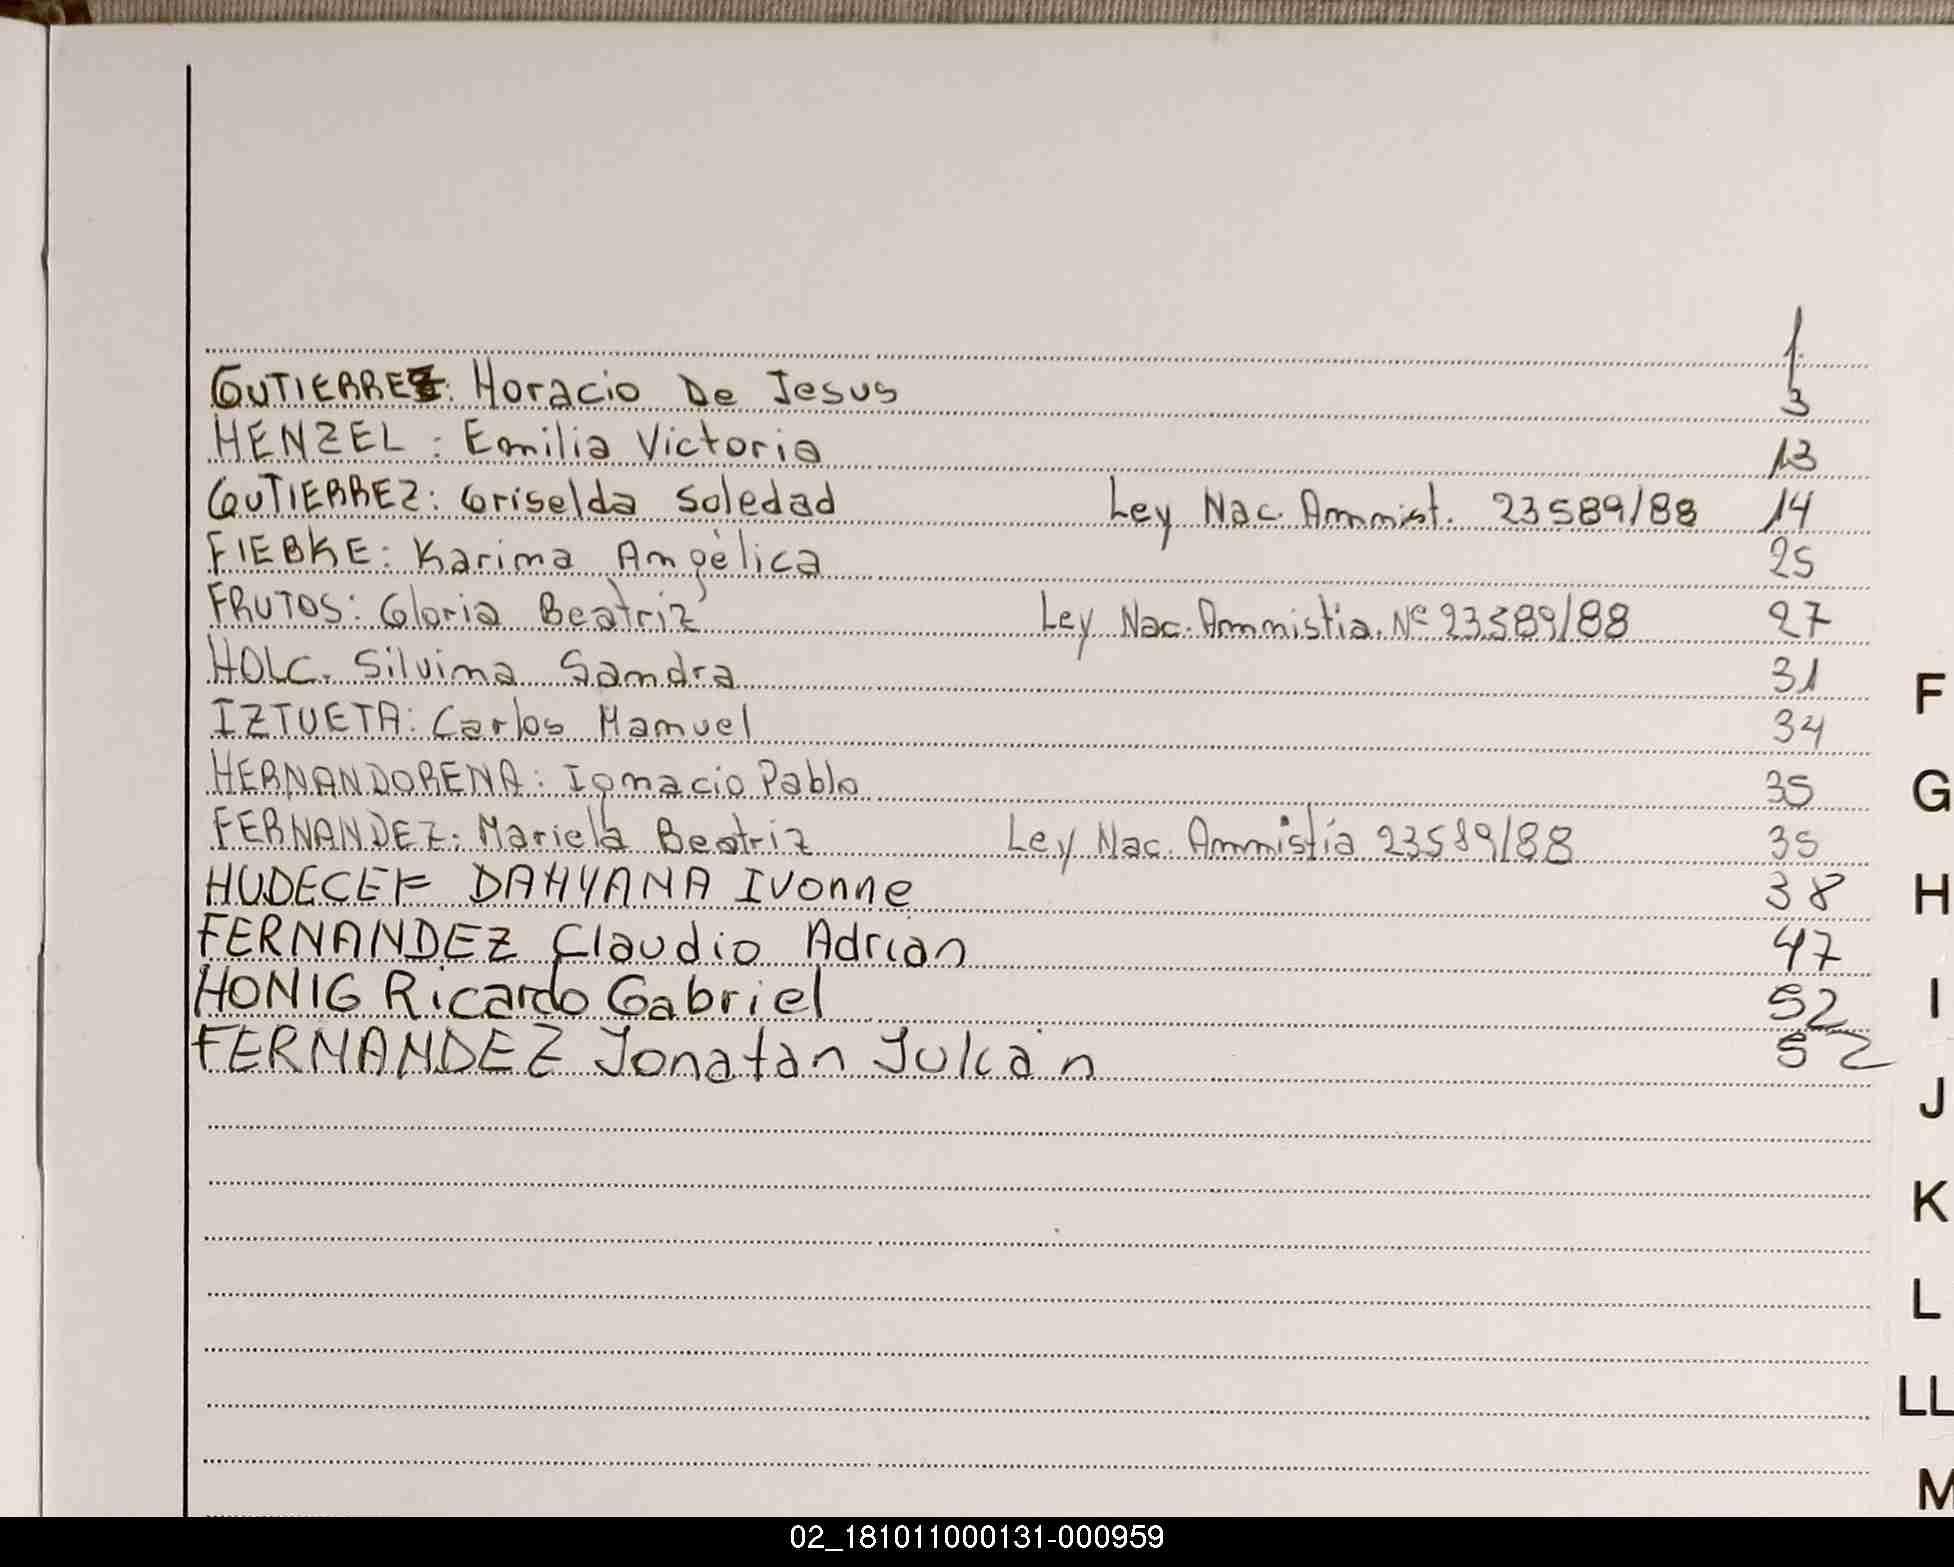 f.
GUTIERREZ: Horacio De Jesus 3
HENZEL: Emilia Victoria 13
GUTIERREZ: Griselda Soledad Ley Nac. Amnist. 23589/88 14
FIEBKE: Karina Angélica 25
FRUTOS: Gloria Beatriz Ley Nac. Amnistia. Nº 23.589/88 27
HOLC. Silvina Sandra 31
IZTUETA: Carlos Manuel 34
HERNANDORENA: Ignacio Pablo 35
FERNANDEZ: Mariela Beatriz Ley Nac. Amnistía 23589/88 35
HUDECEK DAHYANA Ivonne 38
FERNANDEZ Claudio Adrian 47
HONIG Ricardo Gabriel 52
FERNANDEZ Jonatan Julian 52
F
G
H
I
J
K
L
LL
M
02_181011000131-000959